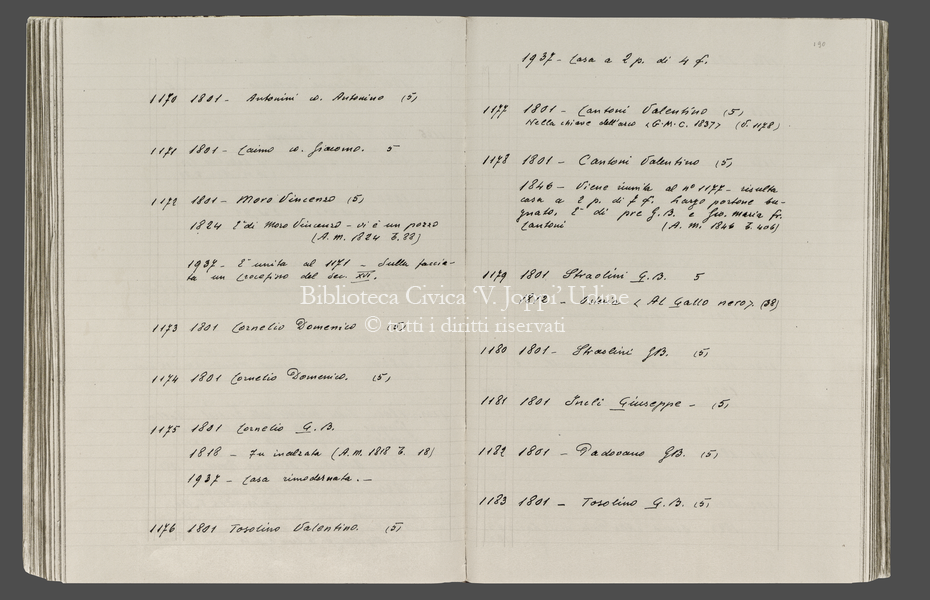 1170 1801 - Antonini co. Antonino (5)
1171 1801 - Caimo co. Giacomo. 5
1172 1801 - Moro Vincenzo (5)
1824 È di Moro Vincenzo - vi è un pozzo
(A. M. 1824 E. 88)
1937 - È unita al 1171 - Sulla faccia-
ta un Crocefisso del Sec. XVI.
1173 1801 Cornelio Domenico (5)
1174 1801 Cornelio Domenico. (5)
1175 1801 Cornelio G. B.
1818 - Fu inalzata (A. M. 1818 E. 18)
1937 - Casa rimodernata. -
1176 1801 Tosolino Valentino. (5)
190
1937 - Casa a 2 p. di 4 f.
1177 1801 - Cantoni Valentino (5)
Nella chiave dell'arco < G.M.C. 1837> (V. 1178)
1178 1801 - Cantoni Valentino (5)
1846 - Viene riunita al nº 1177 - risulta
casa a 2 p. di 7 f. Largo portone bu-
gnato. È di pre G. B. e Gio. Maria fr.
Cantoni (A. M. 1846 E. 406)
1179 1801 Straolini G. B. 5
Biblioteca Civica 'V. Joppi' Udine
< Al Gallo nero> (38)
© tutti i diritti riservati
1180 1801 - Straolini GB. (5)
1181 1801 Giuseppe - (5)
1182 1801 - Padovano GB. (5)
1183 1801 - Tosolino G. B. (5)